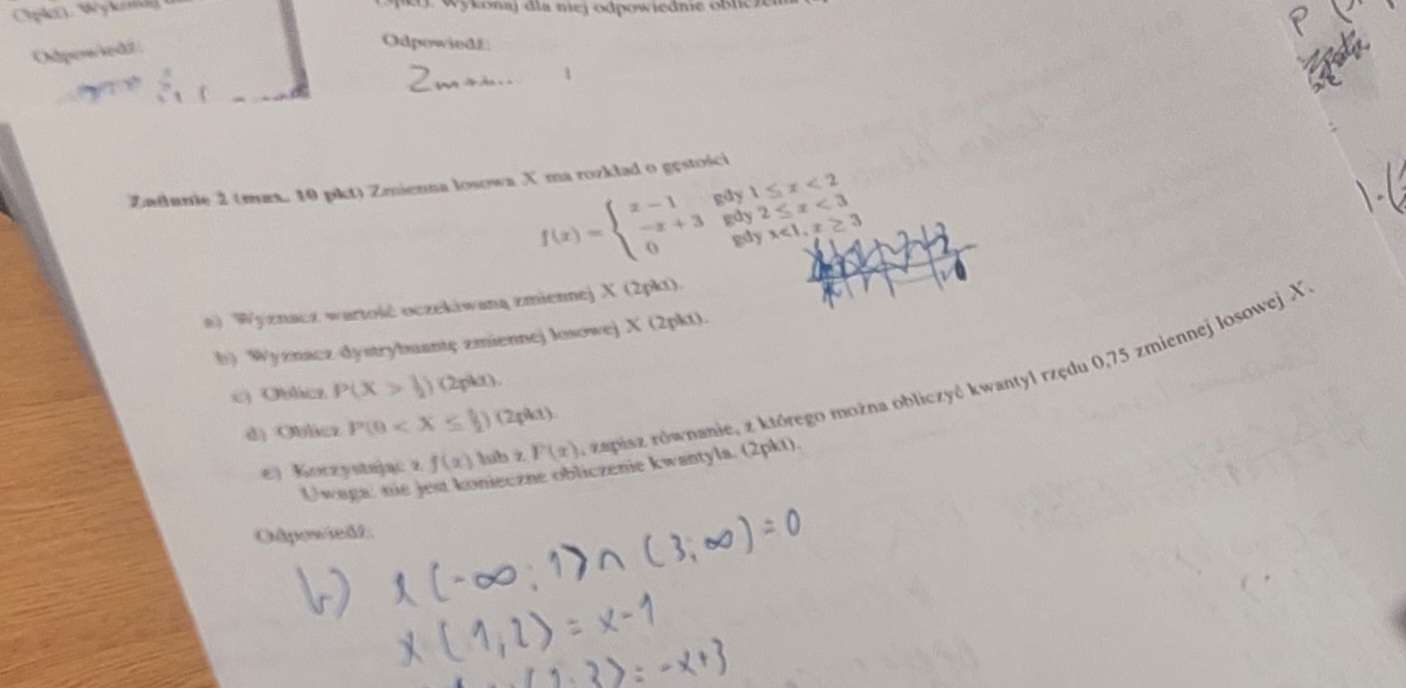 (3pkt). Wykonaj
wykonaj dla niej odpowiednie
Odpowiedź:
Odpowiedź:
Zadanie 2 (max. 10 pkt) Zmienna losowa X ma rozkład o gęstości
f(x) = { x − 1 gdy 1 ≤ x < 2
−x + 3 gdy 2 ≤ x < 3
0 gdy x<1, x ≥ 3
a) Wyznacz wartość oczekiwaną zmiennej X (2pkt).
b) Wyznacz dystrybuantę zmiennej losowej X (2pkt).
c) Oblicz P(X > ) (2pkt).
d) Oblicz P(0 < X ≤ ) (2pkt).
e) Korzystając z f(x) lub z F(x), zapisz równanie, z którego można obliczyć kwantyl rzędu 0,75 zmiennej losowej X.
Uwaga: nie jest konieczne obliczenie kwantyla. (2pkt).
Odpowiedź:
b) x (-∞; 1> ∩ (3; ∞) = 0
x (1,2> = x-1
3> = -x+3